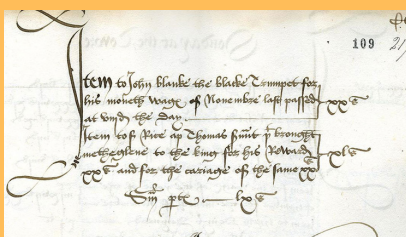 109
Item to John blanke the blacke Trumpet for
his moneth wage of Nouembre last passed
at viijd the day xxs
Item to Rice ap Thomas brought
metheglene to the king for his Reward
xxs and for the cariage of the same xxs xls
Sm lxs